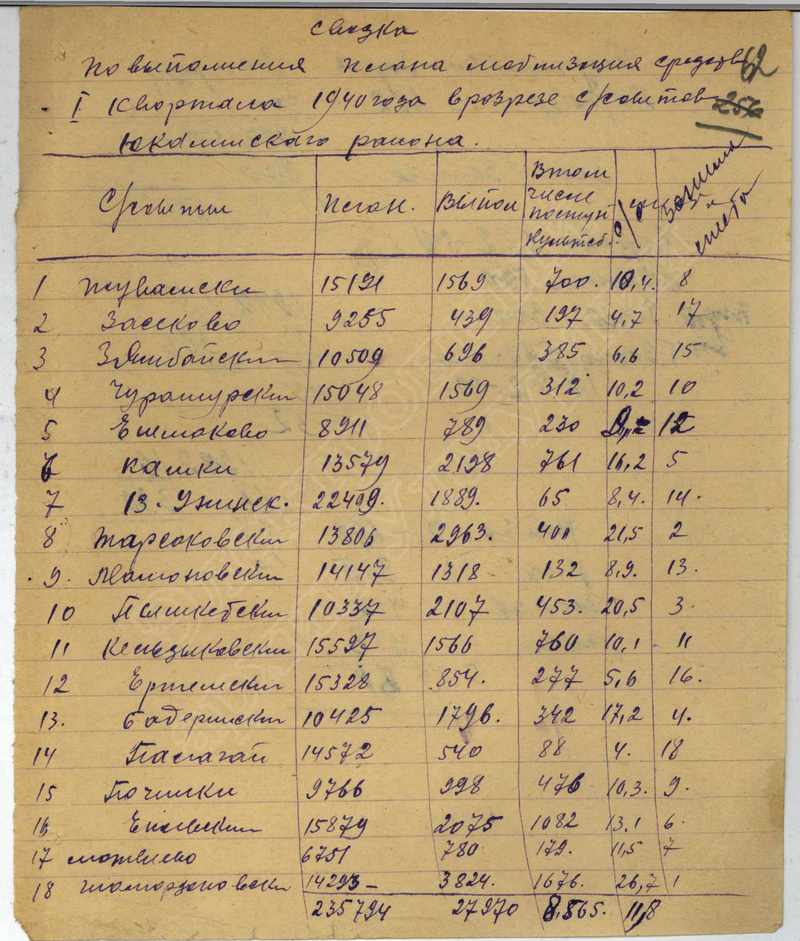 Сводка
по выполнения плана мобилизация средств 62
I Квартала 1940 года в розрезе с/советов 256
Юкаминского района.
С/советы План. Выпол В том числе поступ культсб. % Занима места
1 15191 1569 700. 10,4. 8
2 Засеково 9255 439 197 4,7 17
3 Зянбайский 10509 696 385 6,6 15
4 Чурашурский 15048 1569 312 10,2 10
5 Ежмаково 8911 789 230 12
6 Камки 13579 2198 761 16,2 5
7 В. Унинск. 22499. 1889. 65 8,4. 14.
8 13806 2963. 400 21,5 2
9. 14147 1318 132 8,9. 13.
10 10337 2107 453. 20,5 3.
11 15597 1566 760 10,1 11
12 15328 854. 277 5,6 16.
13. Бадеринский 10425 1796. 342 17,2 4.
14 Палагай 14572 540 88 4. 18
15 Починки 9766 998 476 10,3. 9.
16 15879 2075 1082 13,1 6.
17 Матвеево 6751 780 179. 11,5 7
18 14293- 3824. 1676. 26,7 1
235794 27970 8.565. 11,8